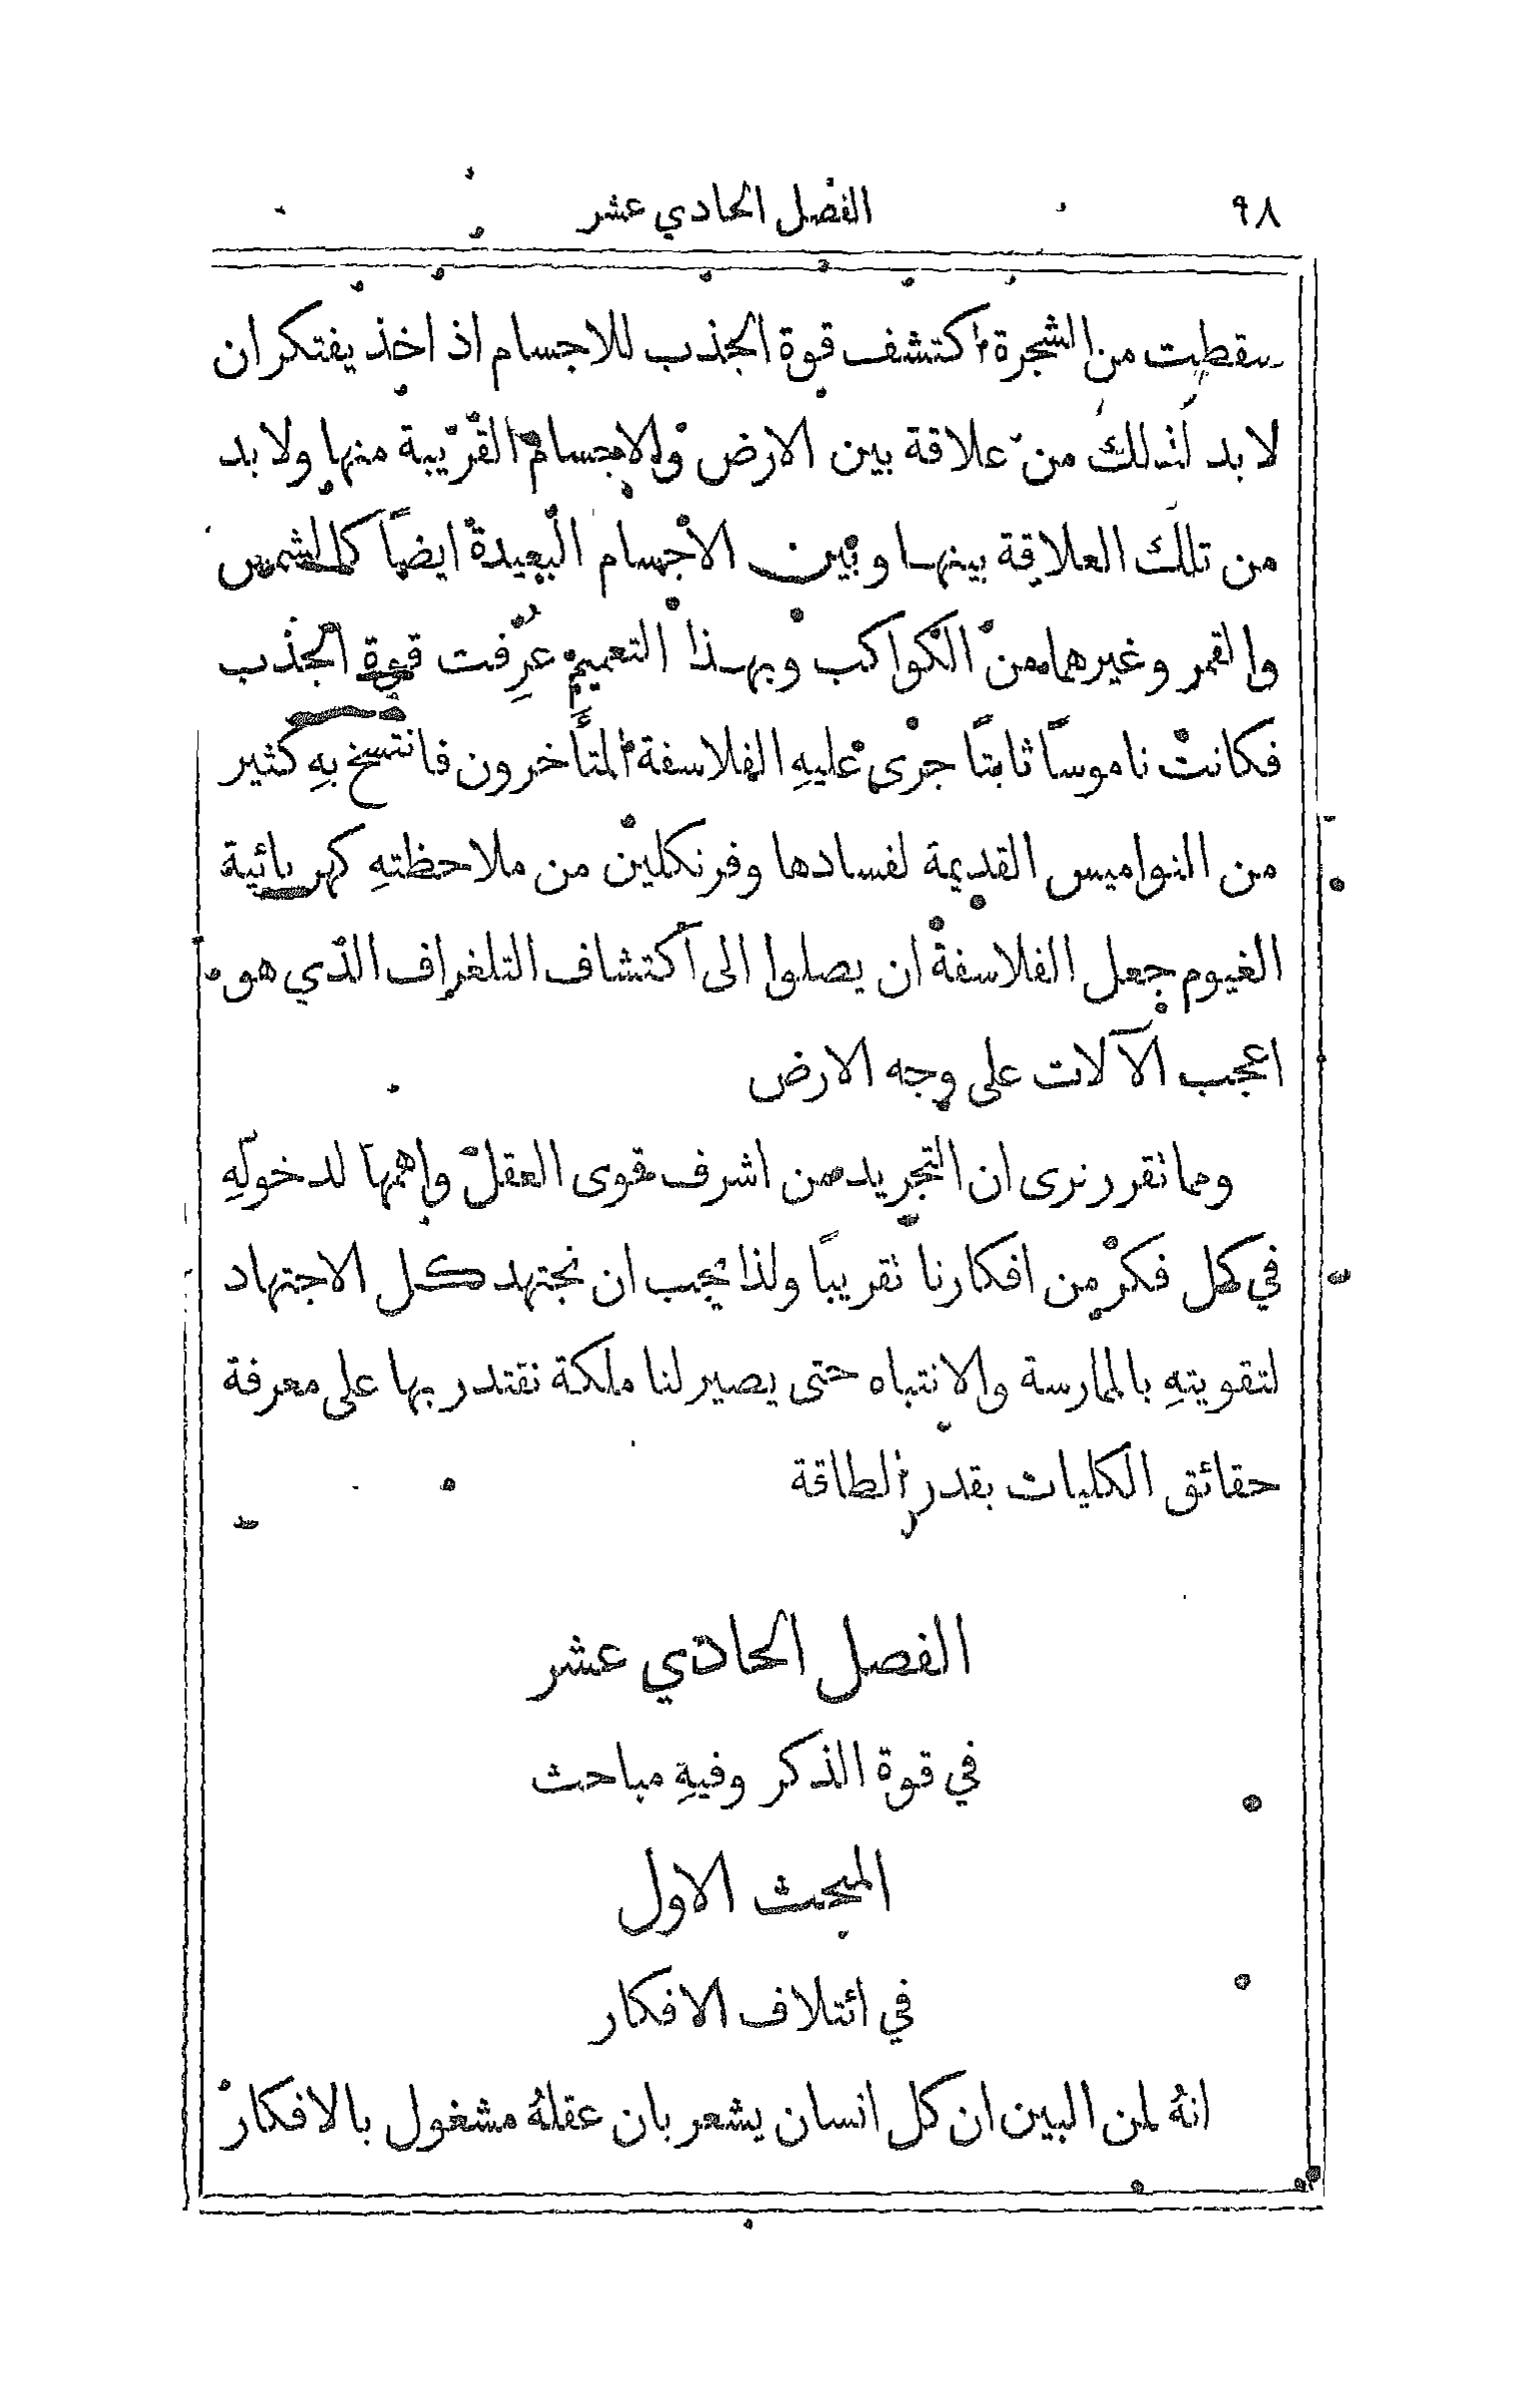 ٩٨ الفصل الحادي عشر
سقطت من الشجرة اكتشف قوة الجذب للاجسام اذ اخذ يفتكر ان
لا بد لذلك من علاقة بين الارض والاجسام القريبة منها ولا بد
من تلك العلاقة بينها وبين الاجسام البعيدة ايضاً كالشمس
والقمر وغيرهما من الكواكب وبهذا التعميم عُرِفت قوة الجذب
فكانت ناموساً ثابتاً جرى عليهِ الفلاسفة المتأخرون فانتسخ بهِ كثير
من النواميس القديمة لفسادها وفرنكلين من ملاحظتهِ كهربائية
الغيوم جعل الفلاسفة ان يصلوا الى اكتشاف التلغراف الذي هو
اعجب الآلات على وجه الارض
ومما نقرر نرى ان التجريد من اشرف قوى العقل واهمها لدخولهِ
في كل فكر من افكارنا نقريباً ولذا يجب ان نجتهد كل الاجتهاد
لتقويتهِ بالممارسة والانتباه حتى يصير لنا ملكة نقتدر بها على معرفة
حقائق الكليات بقدر الطاقة
الفصل الحادي عشر
في قوة الذكر وفيهِ مباحث
المبحث الاول
في ائتلاف الافكار
انهُ لمن البين ان كل انسان يشعر بان عقلهُ مشغول بالافكار